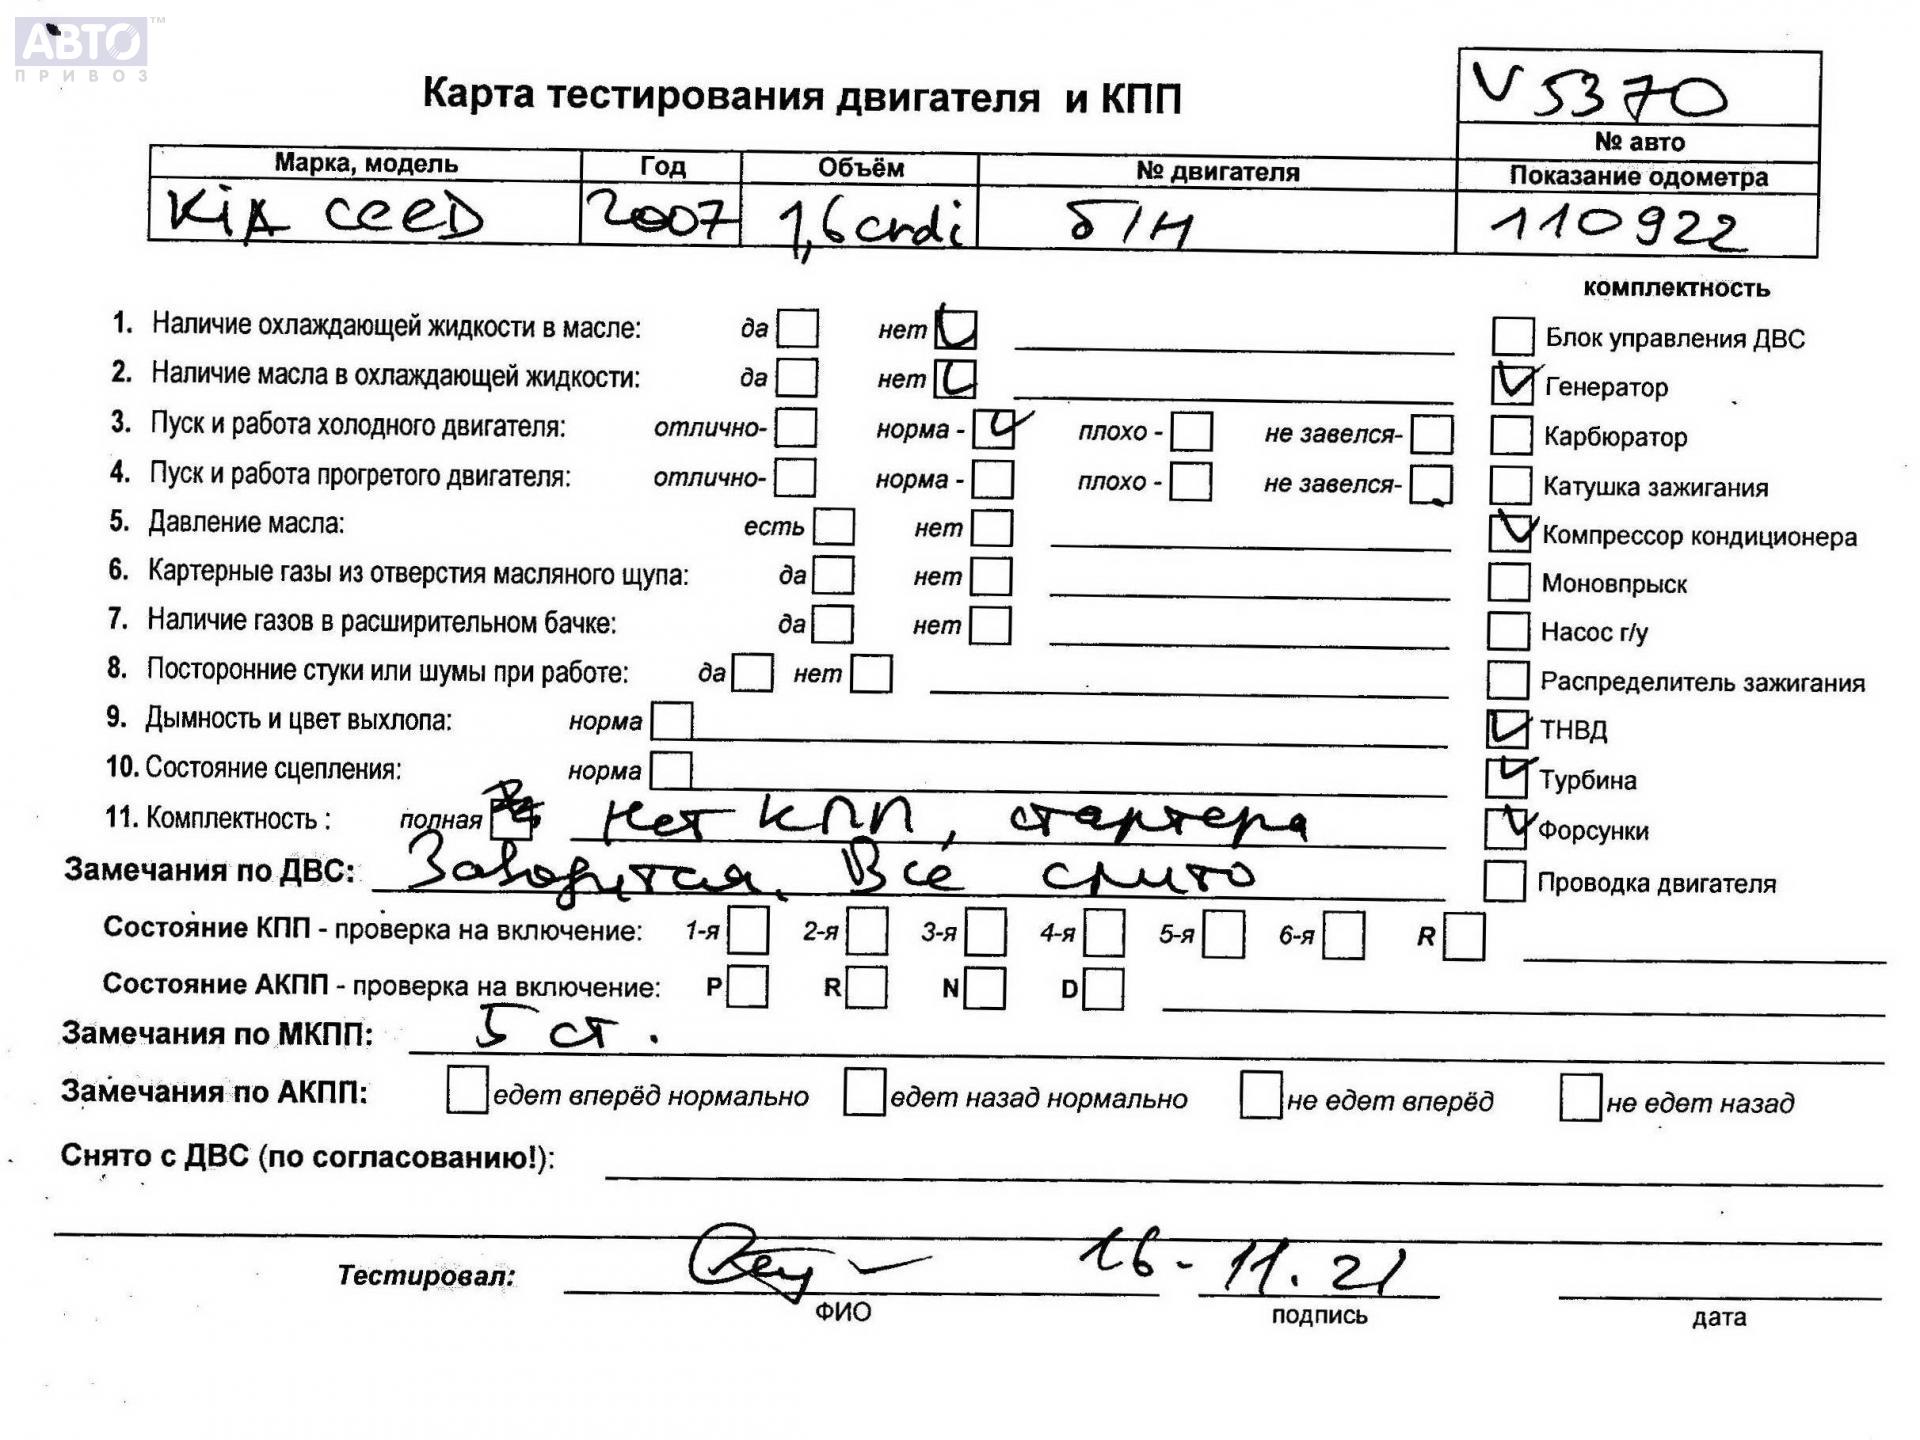 АВТО™
ПРИВОЗ
Карта тестирования двигателя и КПП
V 5370
№ авто
Марка, модель Год Объём № двигателя Показание одометра
KiA CEED 2007 1,6 crdi б/н 110922
комплектность
1. Наличие охлаждающей жидкости в масле: да нет Блок управления ДВС
2. Наличие масла в охлаждающей жидкости: да нет Генератор
3. Пуск и работа холодного двигателя: отлично- норма - плохо - не завелся- Карбюратор
4. Пуск и работа прогретого двигателя: отлично- норма - плохо - не завелся- Катушка зажигания
5. Давление масла: есть нет Компрессор кондиционера
6. Картерные газы из отверстия масляного щупа: да нет Моновпрыск
7. Наличие газов в расширительном бачке: да нет Насос г/у
8. Посторонние стуки или шумы при работе: да нет Распределитель зажигания
9. Дымность и цвет выхлопа: норма ТНВД
10. Состояние сцепления: норма Турбина
11. Комплектность : полная нет КПП, стартера Форсунки
Замечания по ДВС: Заводится, Всё слито Проводка двигателя
Состояние КПП - проверка на включение: 1-я 2-я 3-я 4-я 5-я 6-я R
Состояние АКПП - проверка на включение: P R N D
Замечания по МКПП: 5 ст.
Замечания по АКПП: едет вперёд нормально едет назад нормально не едет вперёд не едет назад
Снято с ДВС (по согласованию!):
Тестировал: 16.11.21
ФИО подпись дата